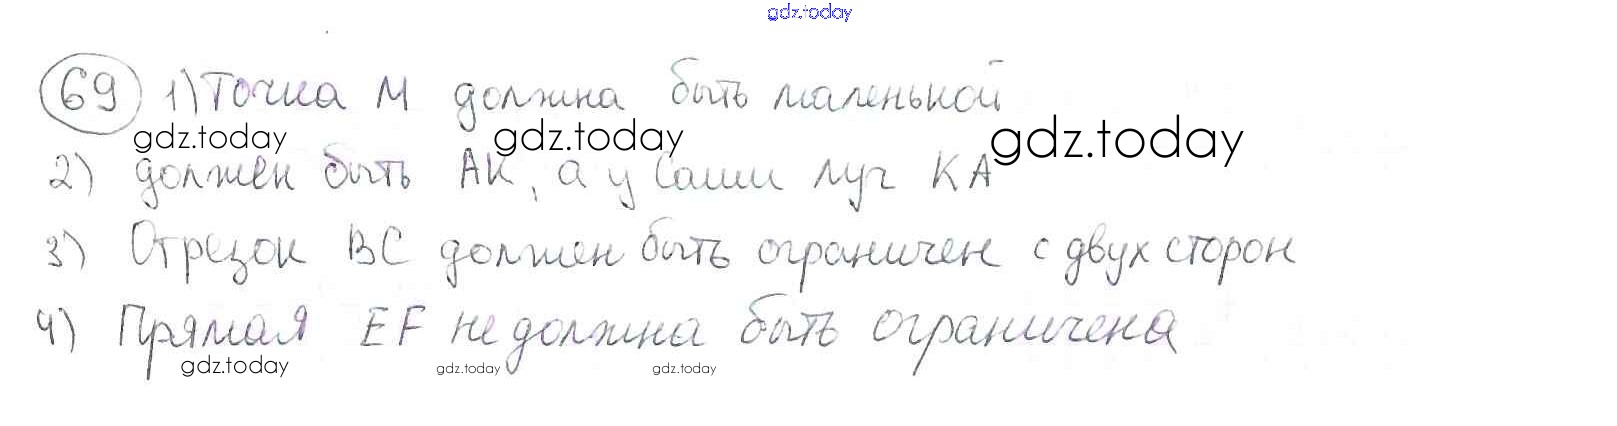 gdz.today
69 1) Точка М должна быть маленькой
gdz.today gdz.today gdz.today
2) должен быть АК, а у Саши луч КА
3) Отрезок ВС должен быть ограничен с двух сторон
4) Прямая EF не должна быть ограничена
gdz.today gdz.today gdz.today